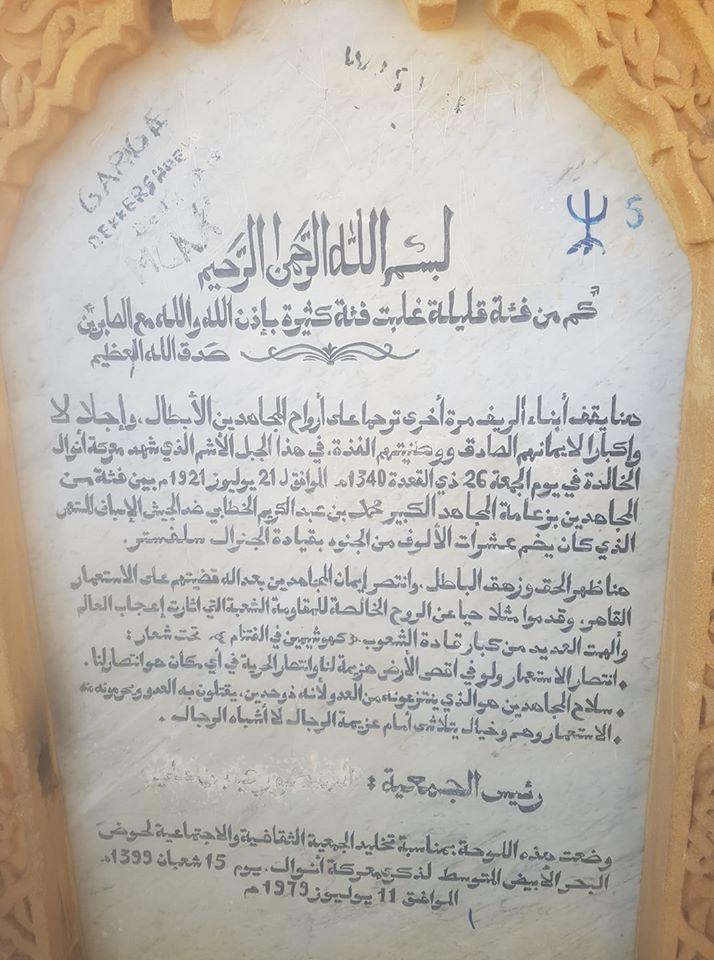 GARDA
DEKKERS
MLAK
5
بسم الله الرحمن الرحيم
كم من فئة قليلة غلبت فئة كثيرة بإذن الله والله مع الصابرين
صدق الله العظيم
هنا يقف أبناء الريف مرة أخرى ترحما على أرواح المجاهدين الأبطال، وإجلالا
وإكبارا لايمانهم الصادق ووطنيتهم الفذة، في هذا الجبل الأشم الذي شهد معركة أنوال
الخالدة في يوم الجمعة 26 ذي القعدة 1340هـ الموافق لـ 21 يوليوز 1921م بين فئة من
المجاهدين بزعامة المجاهد الكبير محمد بن عبد الكريم الخطابي ضد الجيش الإسباني المستعمر
الذي كان يضم عشرات الألوف من الجنود بقيادة الجنرال سلفستر.
هنا ظهر الحق وزهق الباطل، وانتصر إيمان المجاهدين بعدالة قضيتهم على الاستعمار
القاهر، وقدموا مثلا حيا عن الروح الخالصة للمقاومة الشعبية التي اثارت إعجاب العالم
وألهمت العديد من كبار قادة الشعوب «كهوشيمين في الفتنام»، تحت شعار:
• انتصار الاستعمار ولو في اقصى الأرض هزيمة لنا وانتصار الحرية في أي مكان هو انتصار لنا.
• سلاح المجاهدين هو الذي ينتزعونه من العدو لانه ذو حدين، يقتلون به العدو ويحرمونه منه
• الاستعمار وهم وخيال يتلاشى أمام عزيمة الرجال لا أشباه الرجال.
رئيس الجمعية:
وضعت هذه اللوحة بمناسبة تخليد الجمعية الثقافية والاجتماعية لحوض
البحر الأبيض المتوسط لذكرى معركة أنوال، يوم 15 شعبان 1399هـ
الموافق 11 يوليوز 1979م